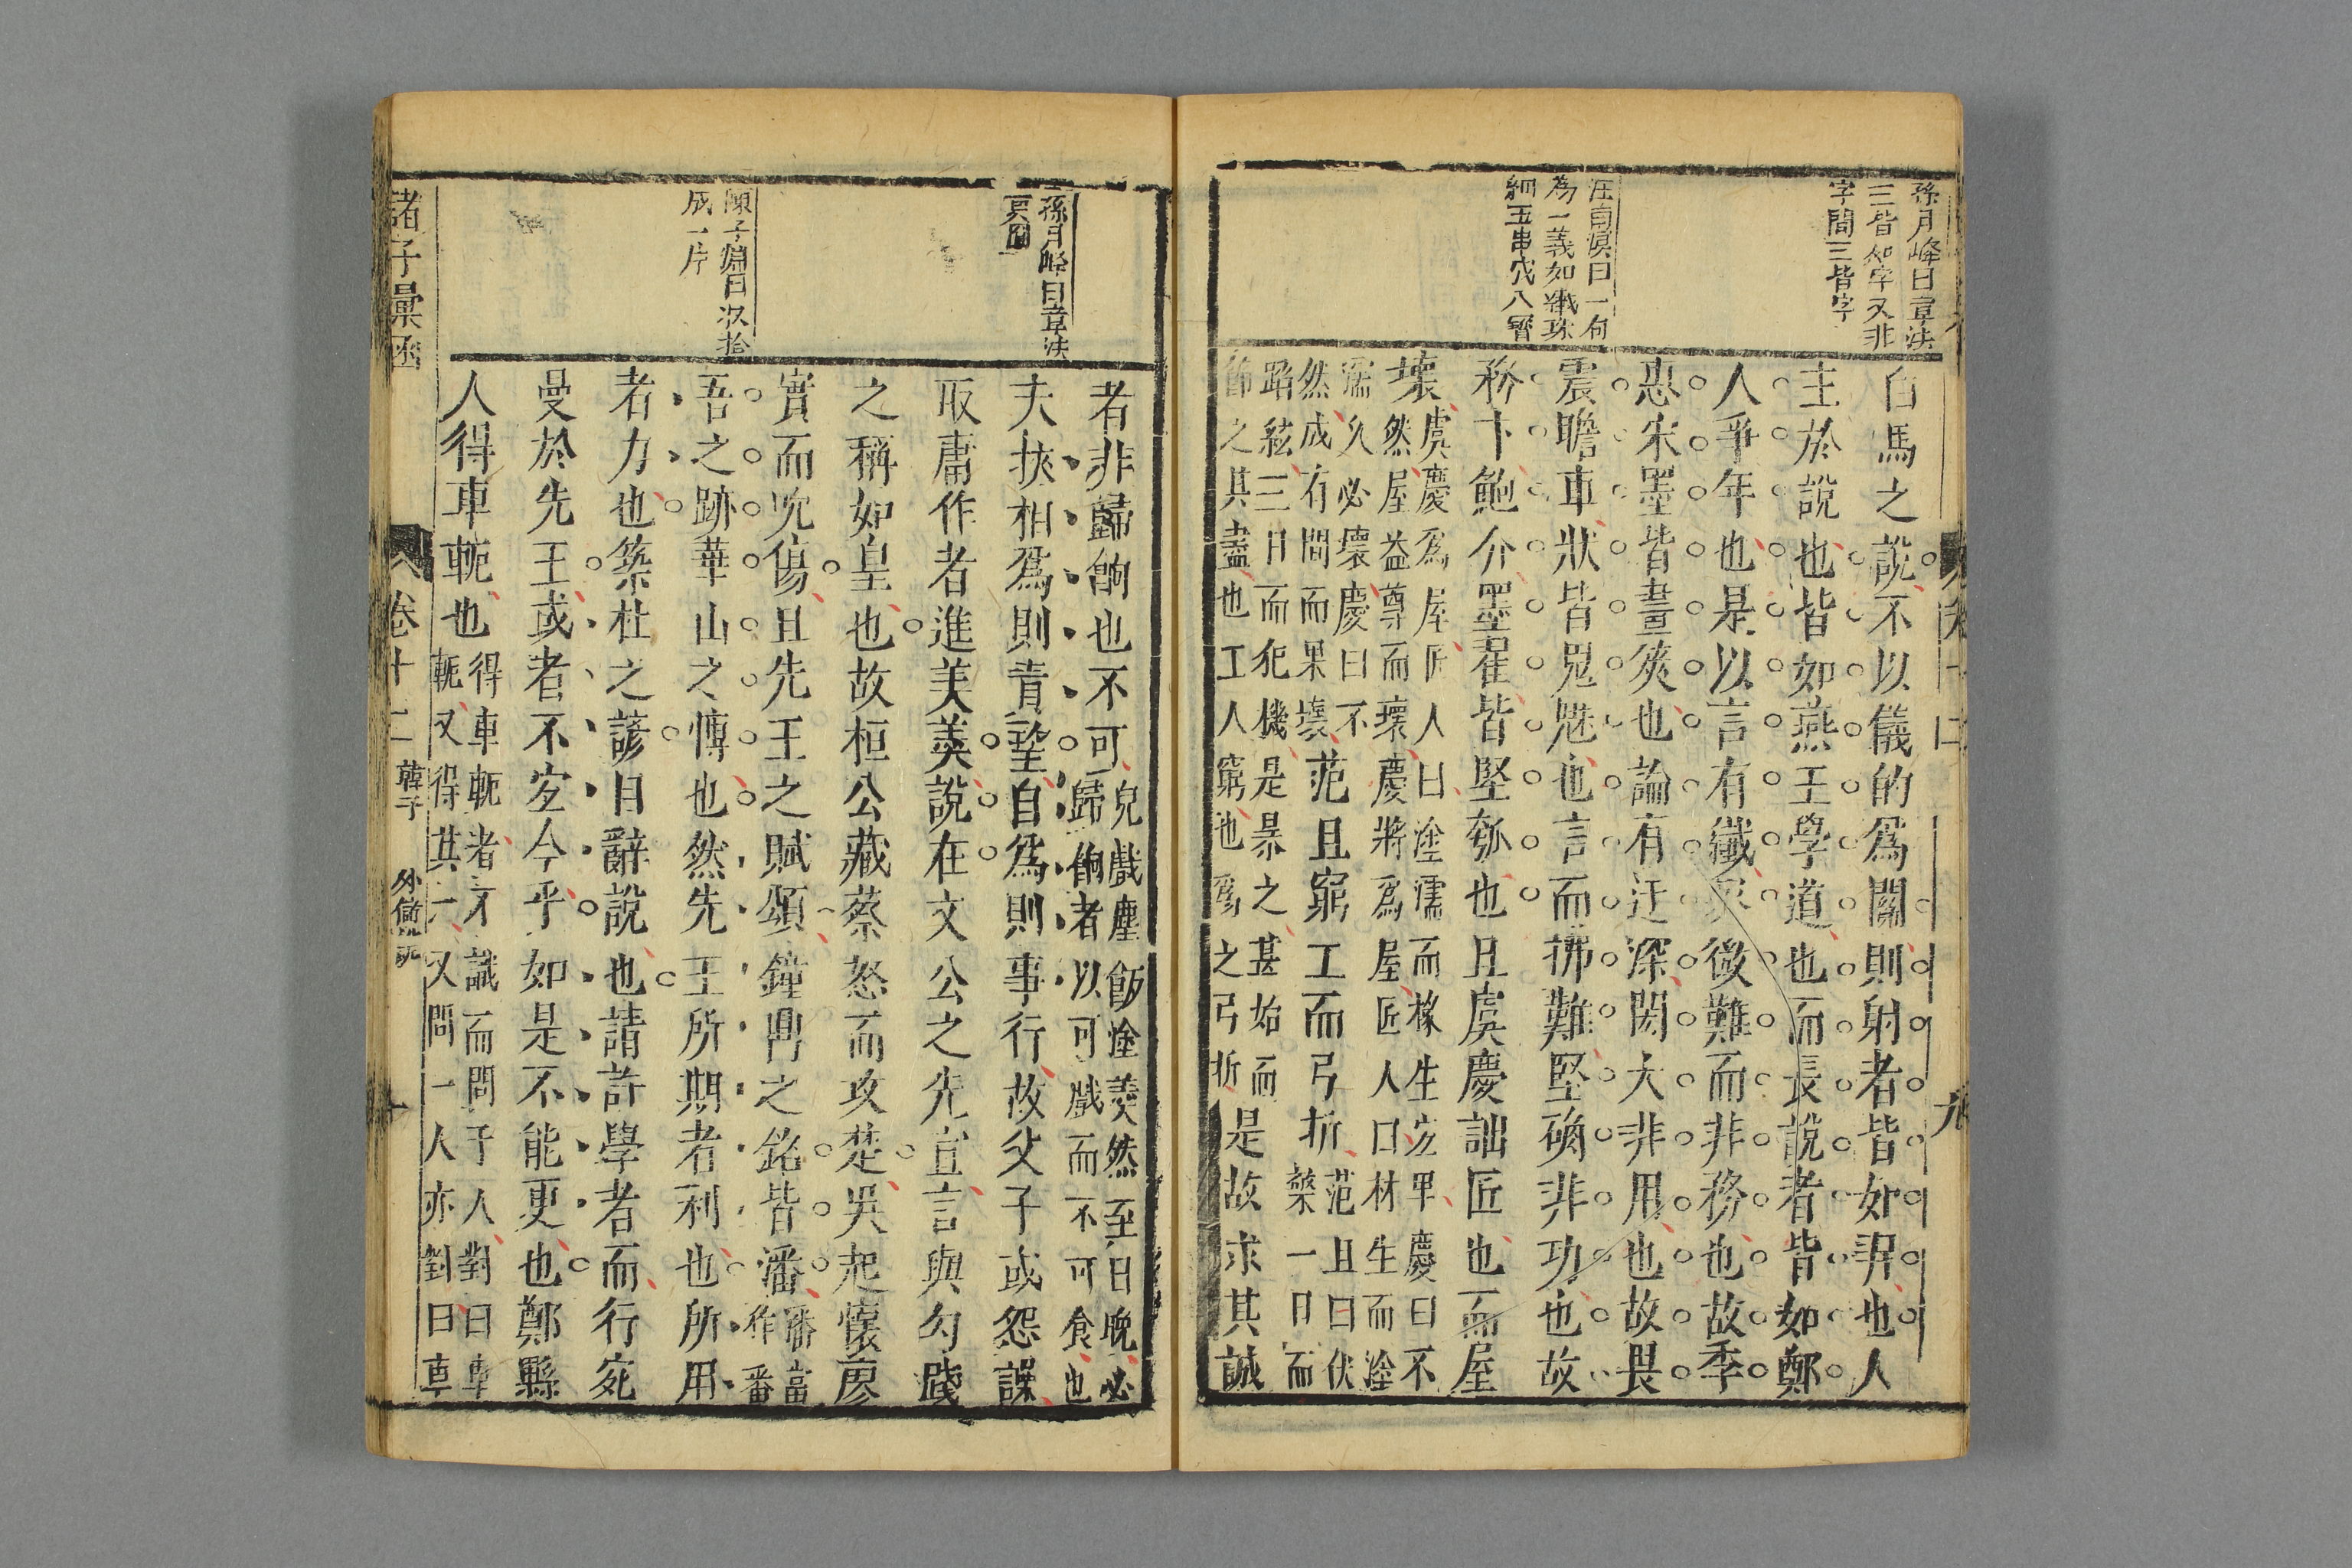 孫月峰曰章法
三皆如字又非
字間三皆字
汪南溟曰一句
爲一義如蟻珠
細五串穴八寶
白馬之說不以儀的爲關則射者皆如羿也人
主於說也皆如燕王學道也而長說者皆如鄭
人爭年也是以言有纖察微難而非務也故季
惠宋墨皆畫筴也論有迂深閎大非用也故畏
震瞻車狀皆鬼魅也言而拂難堅确非功也故
務卞鮑介墨翟皆堅瓠也且虞慶詘匠也而屋
壞
虞慶爲屋匠人曰塗濡而椽生宐卑慶曰不
然屋益尊而壞慶將爲屋匠人曰材生而塗
濡久必壞慶曰不
然成有間而果壞
范且窮工而弓折
范且曰伏
檠一日而
蹈絃三日而犯機是暴之甚始而
節之其盡也工人窮也爲之弓折
是故求其誠
孫月峰曰章法
陳子淵曰收拾
成一片
者非歸餉也不可
兒戲塵飯塗羹然至日晚必
歸餉者以可戲而不可食也
夫挾相爲則責望自爲則事行故父子或怨譟
取庸作者進美羹說在文公之先宣言與勾踐
之稱如皇也故桓公藏蔡怒而攻楚吳起懷瘳
實而吮傷且先王之賦頌鐘鼎之銘皆潘
潘富
作番
吾之跡華山之愽也然先王所期者利也所用
者力也築杜之諺目辭說也請許學者而行宛
曼於先王或者不宐今乎如是不能更也鄭縣
人得車軛也
得車軛者才識而問于人對曰車
軛又得其一又問一人亦對曰車
諸子彙函
卷十二
韓子
外儲說
九